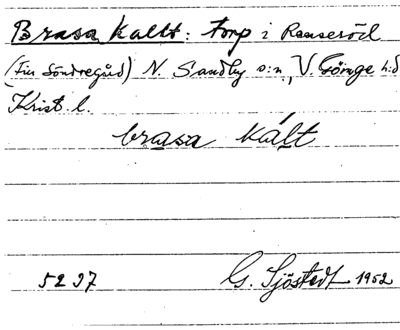 Brasa kallt: torp i Ranseröd
(för Söndregård) N. Sandby s:n, V. Göinge h:d
Krist. l.
brasa kált
5297
G. Sjöstedt 1952